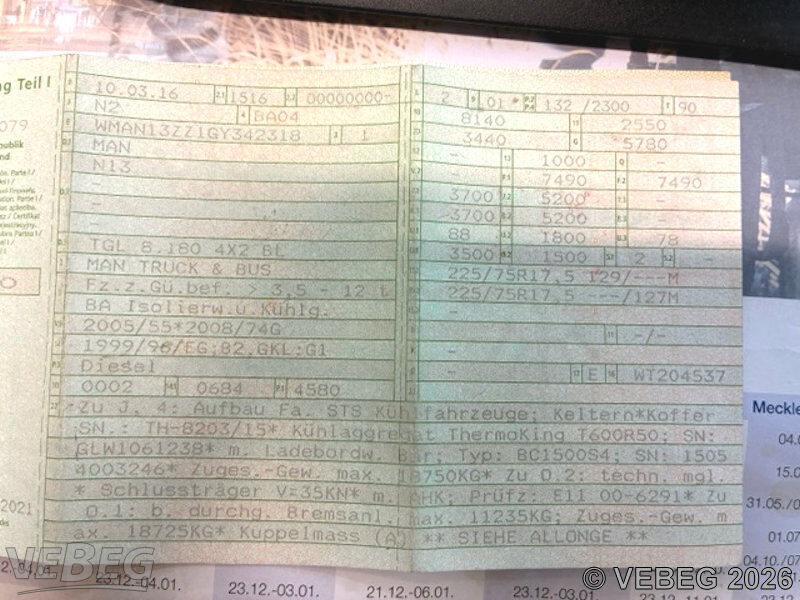 ng Teil I
10.03.16 2.1 1516 2.2 00000000-
N2 4 BA04
WMAN13ZZ1GY342318 3 1
MAN
N13
-
TGL 8.180 4X2 BL
MAN TRUCK & BUS
Fz.z.Gü.bef. > 3,5 - 12 t
BA Isolierw.u.Kühlg.
2005/55*2008/74G
1999/96/EG;B2,GKL:G1
Diesel
0002 0684 4580
2 01 132 /2300 90
8140 2550
3440 5780
- 1000 -
- 7490 7490
3700 5200 -
3700 5200 -
88 1800 78
3500 1500 2 -
225/75R17,5 129/---M
225/75R17,5 ---/127M
-
- -/-
-
- E WT204537
Zu J. 4: Aufbau Fa. STS Kühlfahrzeuge; Keltern*Koffer
SN.: TH-8203/15* Kühlaggregat ThermoKing T600R50; SN:
GLW1061238* m. Ladebordw. Bär; Typ: BC1500S4; SN: 1505
4003246* Zuges.-Gew. max. 18750KG* Zu O.2: techn. mgl.
* Schlussträger V=35KN* m. AHK; Prüfz: E11 00-6291* Zu
O.1: b. durchg. Bremsanl. max. 11235KG; Zuges.-Gew. m
ax. 18725KG* Kuppelmass (A) ** SIEHE ALLONGE **
079
publik
nd
O
2021
Meckle
04.0
15.0
31.05./0
01.07
04.10./07
23.12.-04.01.
23.12.-03.01.
21.12.-06.01.
23.12.-03.01.
VEBEG
© VEBEG 2026